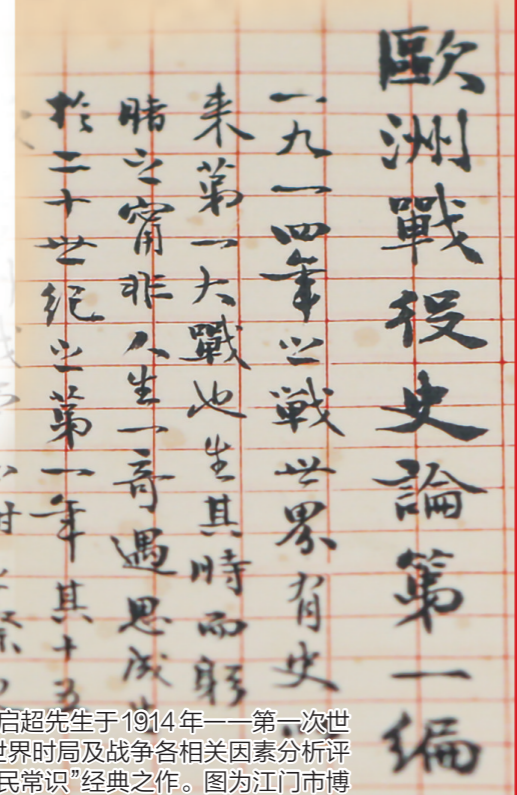 歐洲戰役史論第一編
一九一四年之戰世界有史以
來第一大戰也生其時而躬
睹之甯非人生一奇遇思成
於二十世紀之第一年其十五
启超先生于1914年——第一次世
世界时局及战争各相关因素分析评
民常识”经典之作。图为江门市博